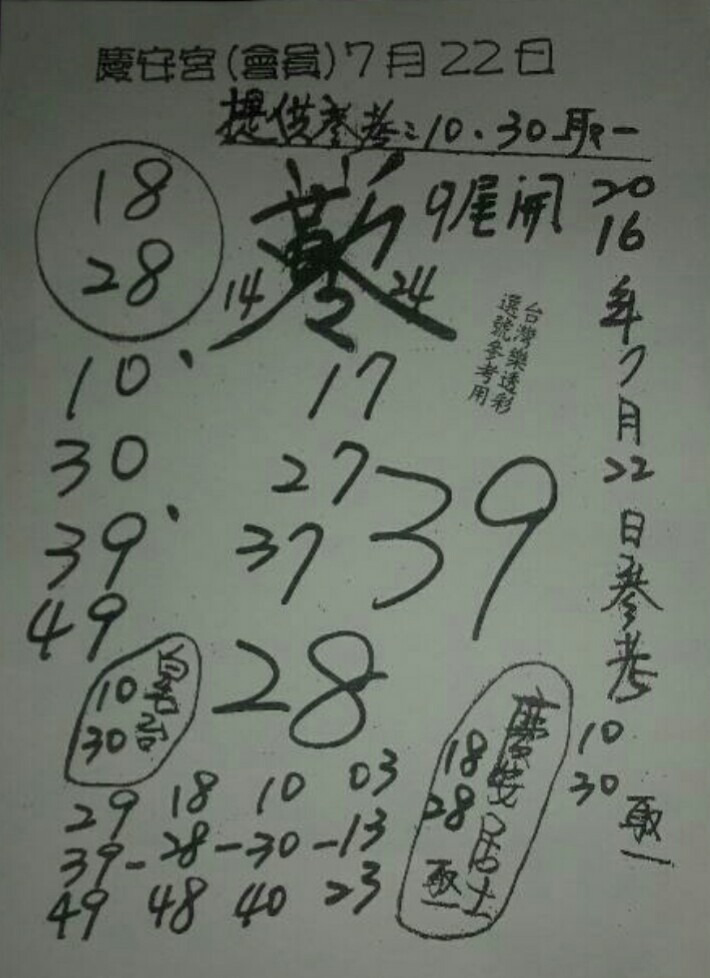 慶安宮(會員)7月22日
提供參考:10.30取一
18
28
14 24
9尾開
2016年7月22日參考
10
30
取一
台灣樂透彩
選號參考用
10、 17
30 27
39、 37 39
49
28
10
30
慶安居士
18
28
取一
29 18 10 03
39-28-30-13
49 48 40 23